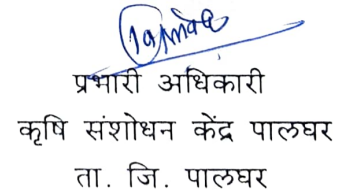 प्रभारी अधिकारी
कृषि संशोधन केंद्र पालघर
ता. जि. पालघर